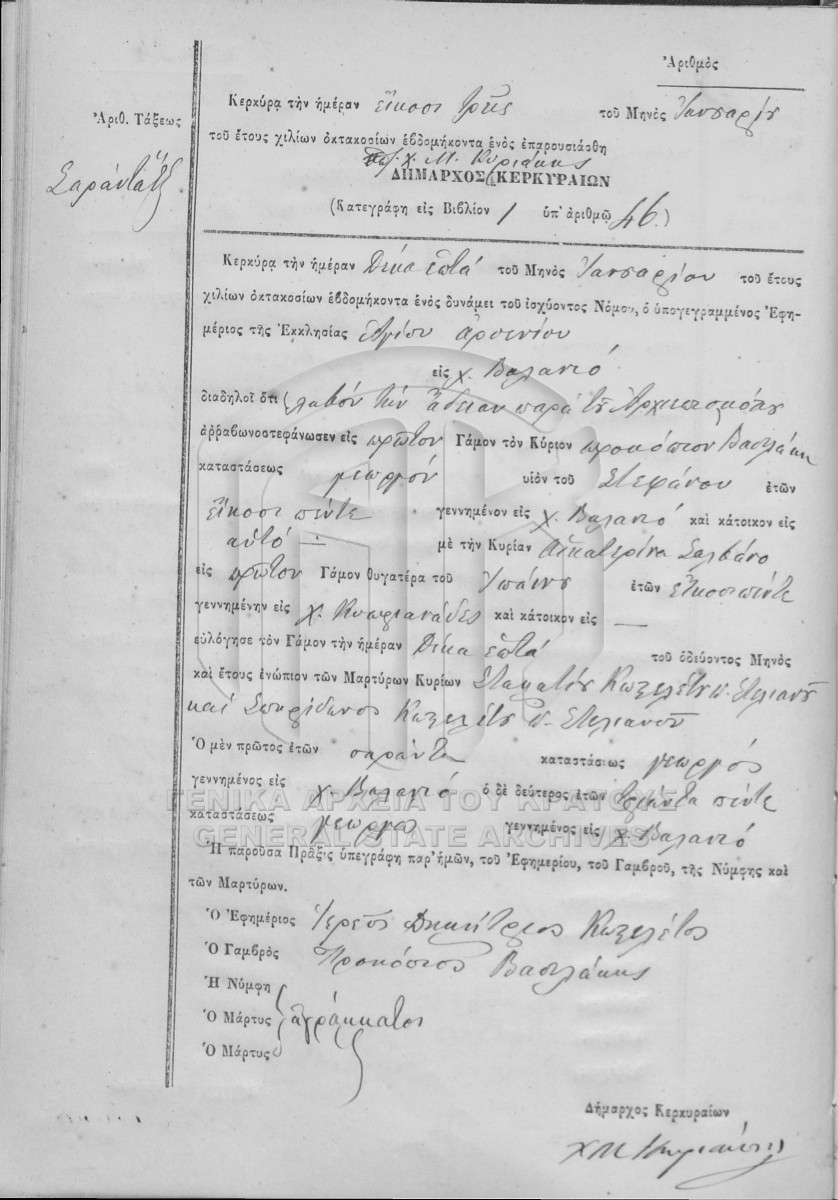 Ἀριθμὸς
Κερκύρᾳ τὴν ἡμέραν εἴκοσι τρεῖς τοῦ Μηνὸς Ἰανουαρίου
Ἀριθ. Τάξεως
τοῦ ἔτους χιλίων ὀκτακοσίων ἑβδομήκοντα ἑνὸς ἐπαρουσιάσθη
Χ. Μ. Κυριάκης
Σαράντα ἕξ
ΔΗΜΑΡΧΟΣ ΚΕΡΚΥΡΑΙΩΝ
(Κατεγράφη εἰς Βιβλίον 1 ὑπ' ἀριθμῷ 46.)
Κερκύρᾳ τὴν ἡμέραν Δέκα ἑπτά τοῦ Μηνὸς Ἰανουαρίου τοῦ ἔτους
χιλίων ὀκτακοσίων ἑβδομήκοντα ἑνὸς δυνάμει τοῦ ἰσχύοντος Νόμου, ὁ ὑπογεγραμμένος Ἐφη-
μέριος τῆς Ἐκκλησίας Ἁγίου Ἀρσενίου
εἰς χ. Βαλανιό
διαδηλοῖ ὅτι λαβόν τήν ἄδειαν παρά τοῦ Ἀρχιεπισκόπου
ἀῤῥαβωνοστεφάνωσεν εἰς πρῶτον Γάμον τὸν Κύριον Προκόπιον Βασιλάκη
καταστάσεως γεωργόν υἱὸν τοῦ Στεφάνου ἐτῶν
εἴκοσι πέντε γεννημένον εἰς χ. Βαλανιό καὶ κάτοικον εἰς
αὐτό — μὲ τὴν Κυρίαν Αἰκατερίνα Σαλβάνο
εἰς πρῶτον Γάμον θυγατέρα τοῦ Ἰωάννου ἐτῶν εἴκοσι πέντε
γεννημένην εἰς χ. Κυπριανάδες καὶ κάτοικον εἰς —
εὐλόγησε τὸν Γάμον τὴν ἡμέραν Δέκα ἑπτά τοῦ ὁδεύοντος Μηνὸς
καὶ ἔτους ἐνώπιον τῶν Μαρτύρων Κυρίων Σταματίου Κοξελέτου π. Στελιανοῦ
καί Σπυρίδωνος Κοξελέτου π. Στελιανοῦ
Ὁ μὲν πρῶτος ἐτῶν σαράντα καταστάσεως γεωργός
γεννημένος εἰς χ. Βαλανιό ὁ δὲ δεύτερος ἐτῶν τριάντα πέντε
καταστάσεως γεωργός γεννημένος εἰς χ. Βαλανιό
ΓΕΝΙΚΑ ΑΡΧΕΙΑ ΤΟΥ ΚΡΑΤΟΥΣ
GENERAL STATE ARCHIVES
Ἡ παροῦσα Πρᾶξις ὑπεγράφη παρ' ἡμῶν, τοῦ Ἐφημερίου, τοῦ Γαμβροῦ, τῆς Νύμφης καὶ
τῶν Μαρτύρων.
Ὁ Ἐφημέριος Ἱερεύς Δημήτριος Κοξελέτος
Ὁ Γαμβρὸς Προκόπιος Βασιλάκης
Ἡ Νύμφη
Ὁ Μάρτυς ἀγράμματοι
Ὁ Μάρτυς
Δήμαρχος Κερκυραίων
Χ Μ Κυριάκης